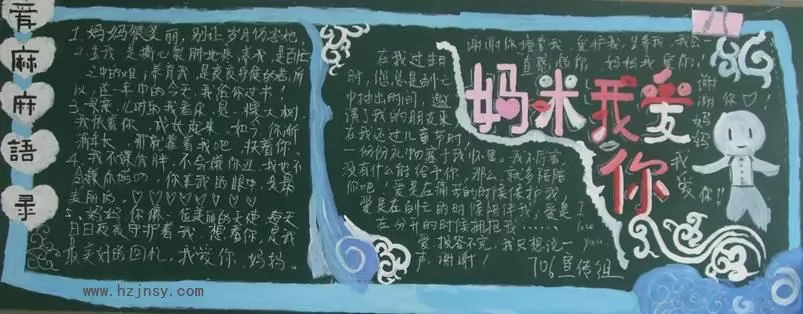 爱
麻
麻
語
录
1、妈妈很美丽,别让岁月伤害她
2、生我是撕心裂肺地疼,养我,是百忙
之中的难;养育我,是夜夜
以,在一年中的今天,我给你过节!
3、儿时的我看你,是一棵大树,
我依着你,成长起来,如今,你渐
渐年长,那就靠着我吧,扶着你。
4、我不嫌你胖,不会嫌你丑,我也不
会嫌你,你在我的眼中,是最
美丽的。♡♡♡♡♡♡♡♡♡
5、妈妈,你像一位美丽的天使,每天
日日夜夜守护着我,想着你,是我
最美好的回礼,我爱你,妈妈。
在我过生日
时,您总是百忙
中抽出时间,邀
请了我的朋友来
在我过儿童节时
一份份礼物塞于我怀里,我不厉害
没有什么能给予你,那么,就多陪陪
你吧,爱是在痛苦的时候保护我,
爱是在百忙的时候陪伴我,爱是
在分开的时候拥抱我……
爱,报答不完,我只想说一
声,谢谢!
谢谢你拥着我,爱护我,生养我,我会一
直感恩你,妈妈我爱你,
谢
谢你♡!
妈
妈
我
爱
你!!
妈米我爱
你
I
love
you.
706宣传组
www.hzjnsy.com